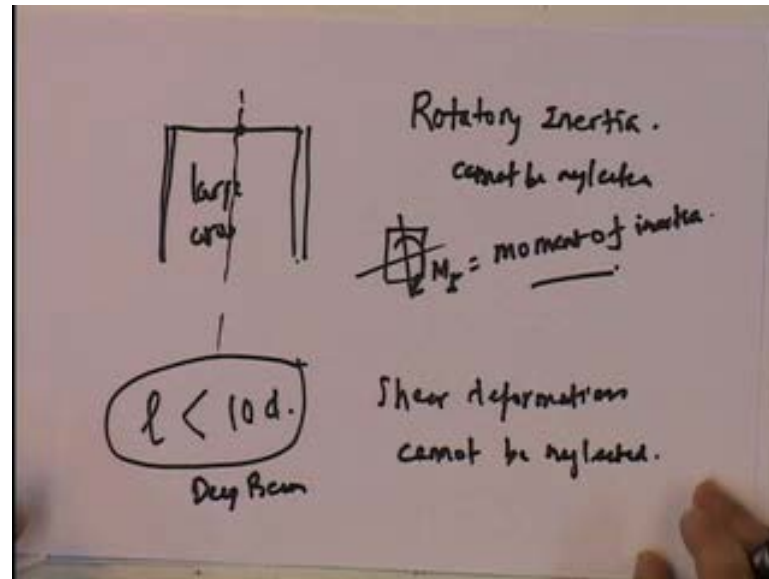 Rotatory Inertia.
cannot be neglected
large
M_I = moment of inertia.
l < 10 d.
Deep Beam
Shear deformations
cannot be neglected.